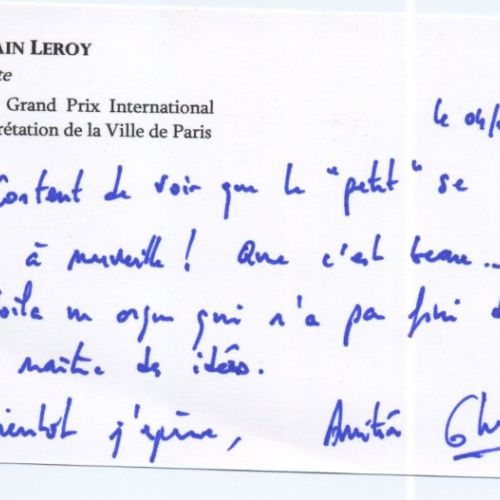 AIN LEROY
te
Grand Prix International
rétation de la Ville de Paris
le 04/
Content de voir que le "petit" se
à merveille ! Que c'est beau...
oilà un orgue qui n'a pas fini d
naître des idées.
ientôt j'espère, Amitiés